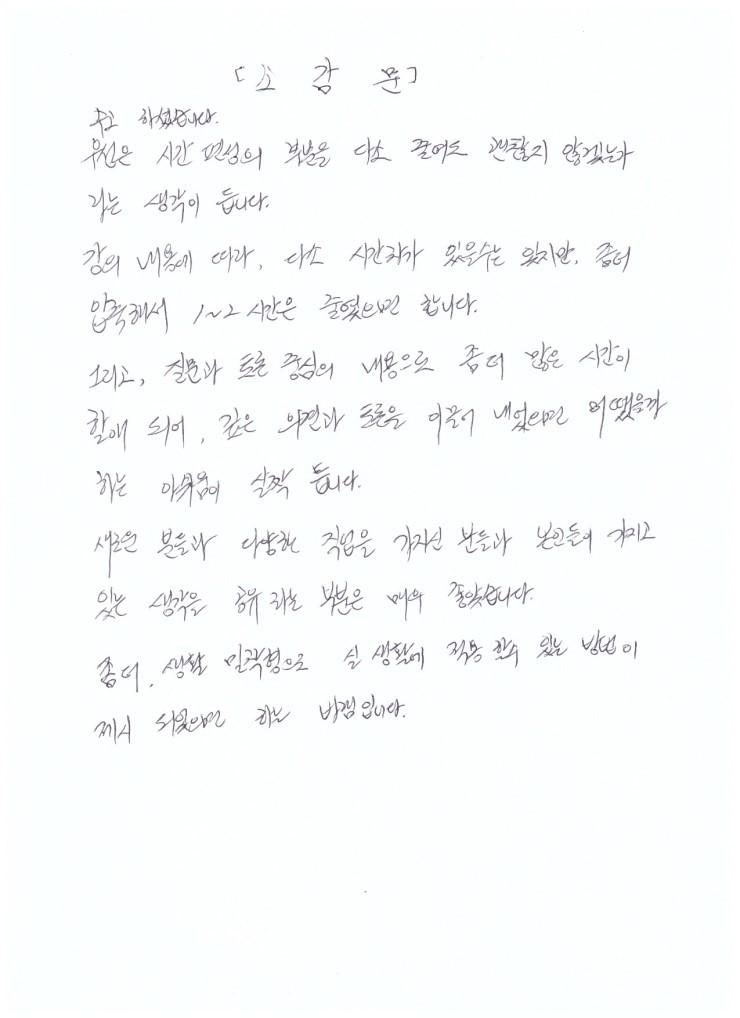 [소 감 문]
수고 하셨습니다.
우선은 시간 편성의 부분을 다소 줄여도 괜찮지 않겠는가
라는 생각이 듭니다.
강의 내용에 따라, 다소 시간차가 있을수는 있지만, 좀더
압축해서 1~2 시간은 줄였으면 합니다.
그리고, 질문과 토론 중심의 내용으로 좀더 많은 시간이
할애 되어, 깊은 의견과 토론을 이끌어 내었으면 어땠을까
하는 아쉬움이 살짝 듭니다.
새로운 분들과 다양한 직업을 가지신 분들과 본인들이 가지고
있는 생각을 공유 하는 부분은 매우 좋았습니다.
좀더, 생활 밀착형으로 실 생활에 적용 할수 있는 방법이
제시 되었으면 하는 바램입니다.